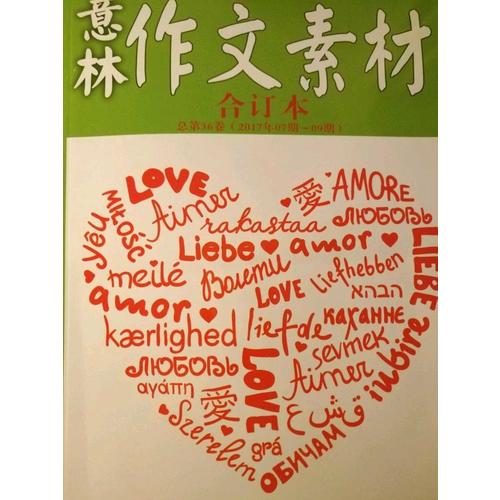 意林
作文素材
合订本
总第36卷（2017年07期-09期）
LOVE
愛
AMORE
yêu
MIŁOŚĆ
Aimer
rakastaa
ЛЮБОВЬ
Liebe
amor
LIEBE
meilé
Волети
LOVE
liefhebben
amor
הבהא
kærlighed
liefde
кахаННЕ
iubire
ЛЮБОВЬ
LOVE
sevmek
αγάπη
愛
Aimer
ع ش ق
Szerelem
grá
ОБИЧАМ